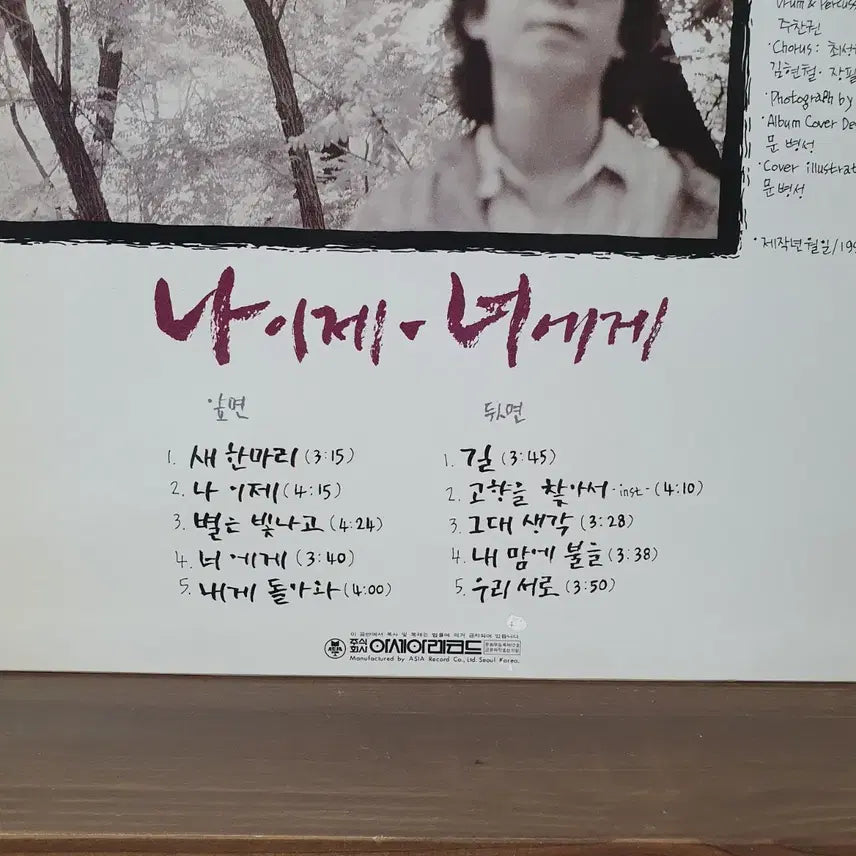 Drum & Percuss
주찬권
·Chorus: 최성
김현철·장필
·Photograph by
·Album Cover De
문병성
·Cover illustrat
문병성
·제작년월일/199
나 이제·너에게
앞면
1. 새 한마리 (3:15)
2. 나 이제 (4:15)
3. 별은 빛나고 (4:24)
4. 너에게 (3:40)
5. 내게 돌아와 (4:00)
뒷면
1. 길 (3:45)
2. 고향을 찾아서 -inst- (4:10)
3. 그대 생각 (3:28)
4. 내 맘에 불을 (3:38)
5. 우리 서로 (3:50)
이 음반에서 복사 및 복제는 법률에 의거 금지되어 있읍니다.
주식회사 아세아레코드
Manufactured by ASIA Record Co., Ltd. Seoul Korea.